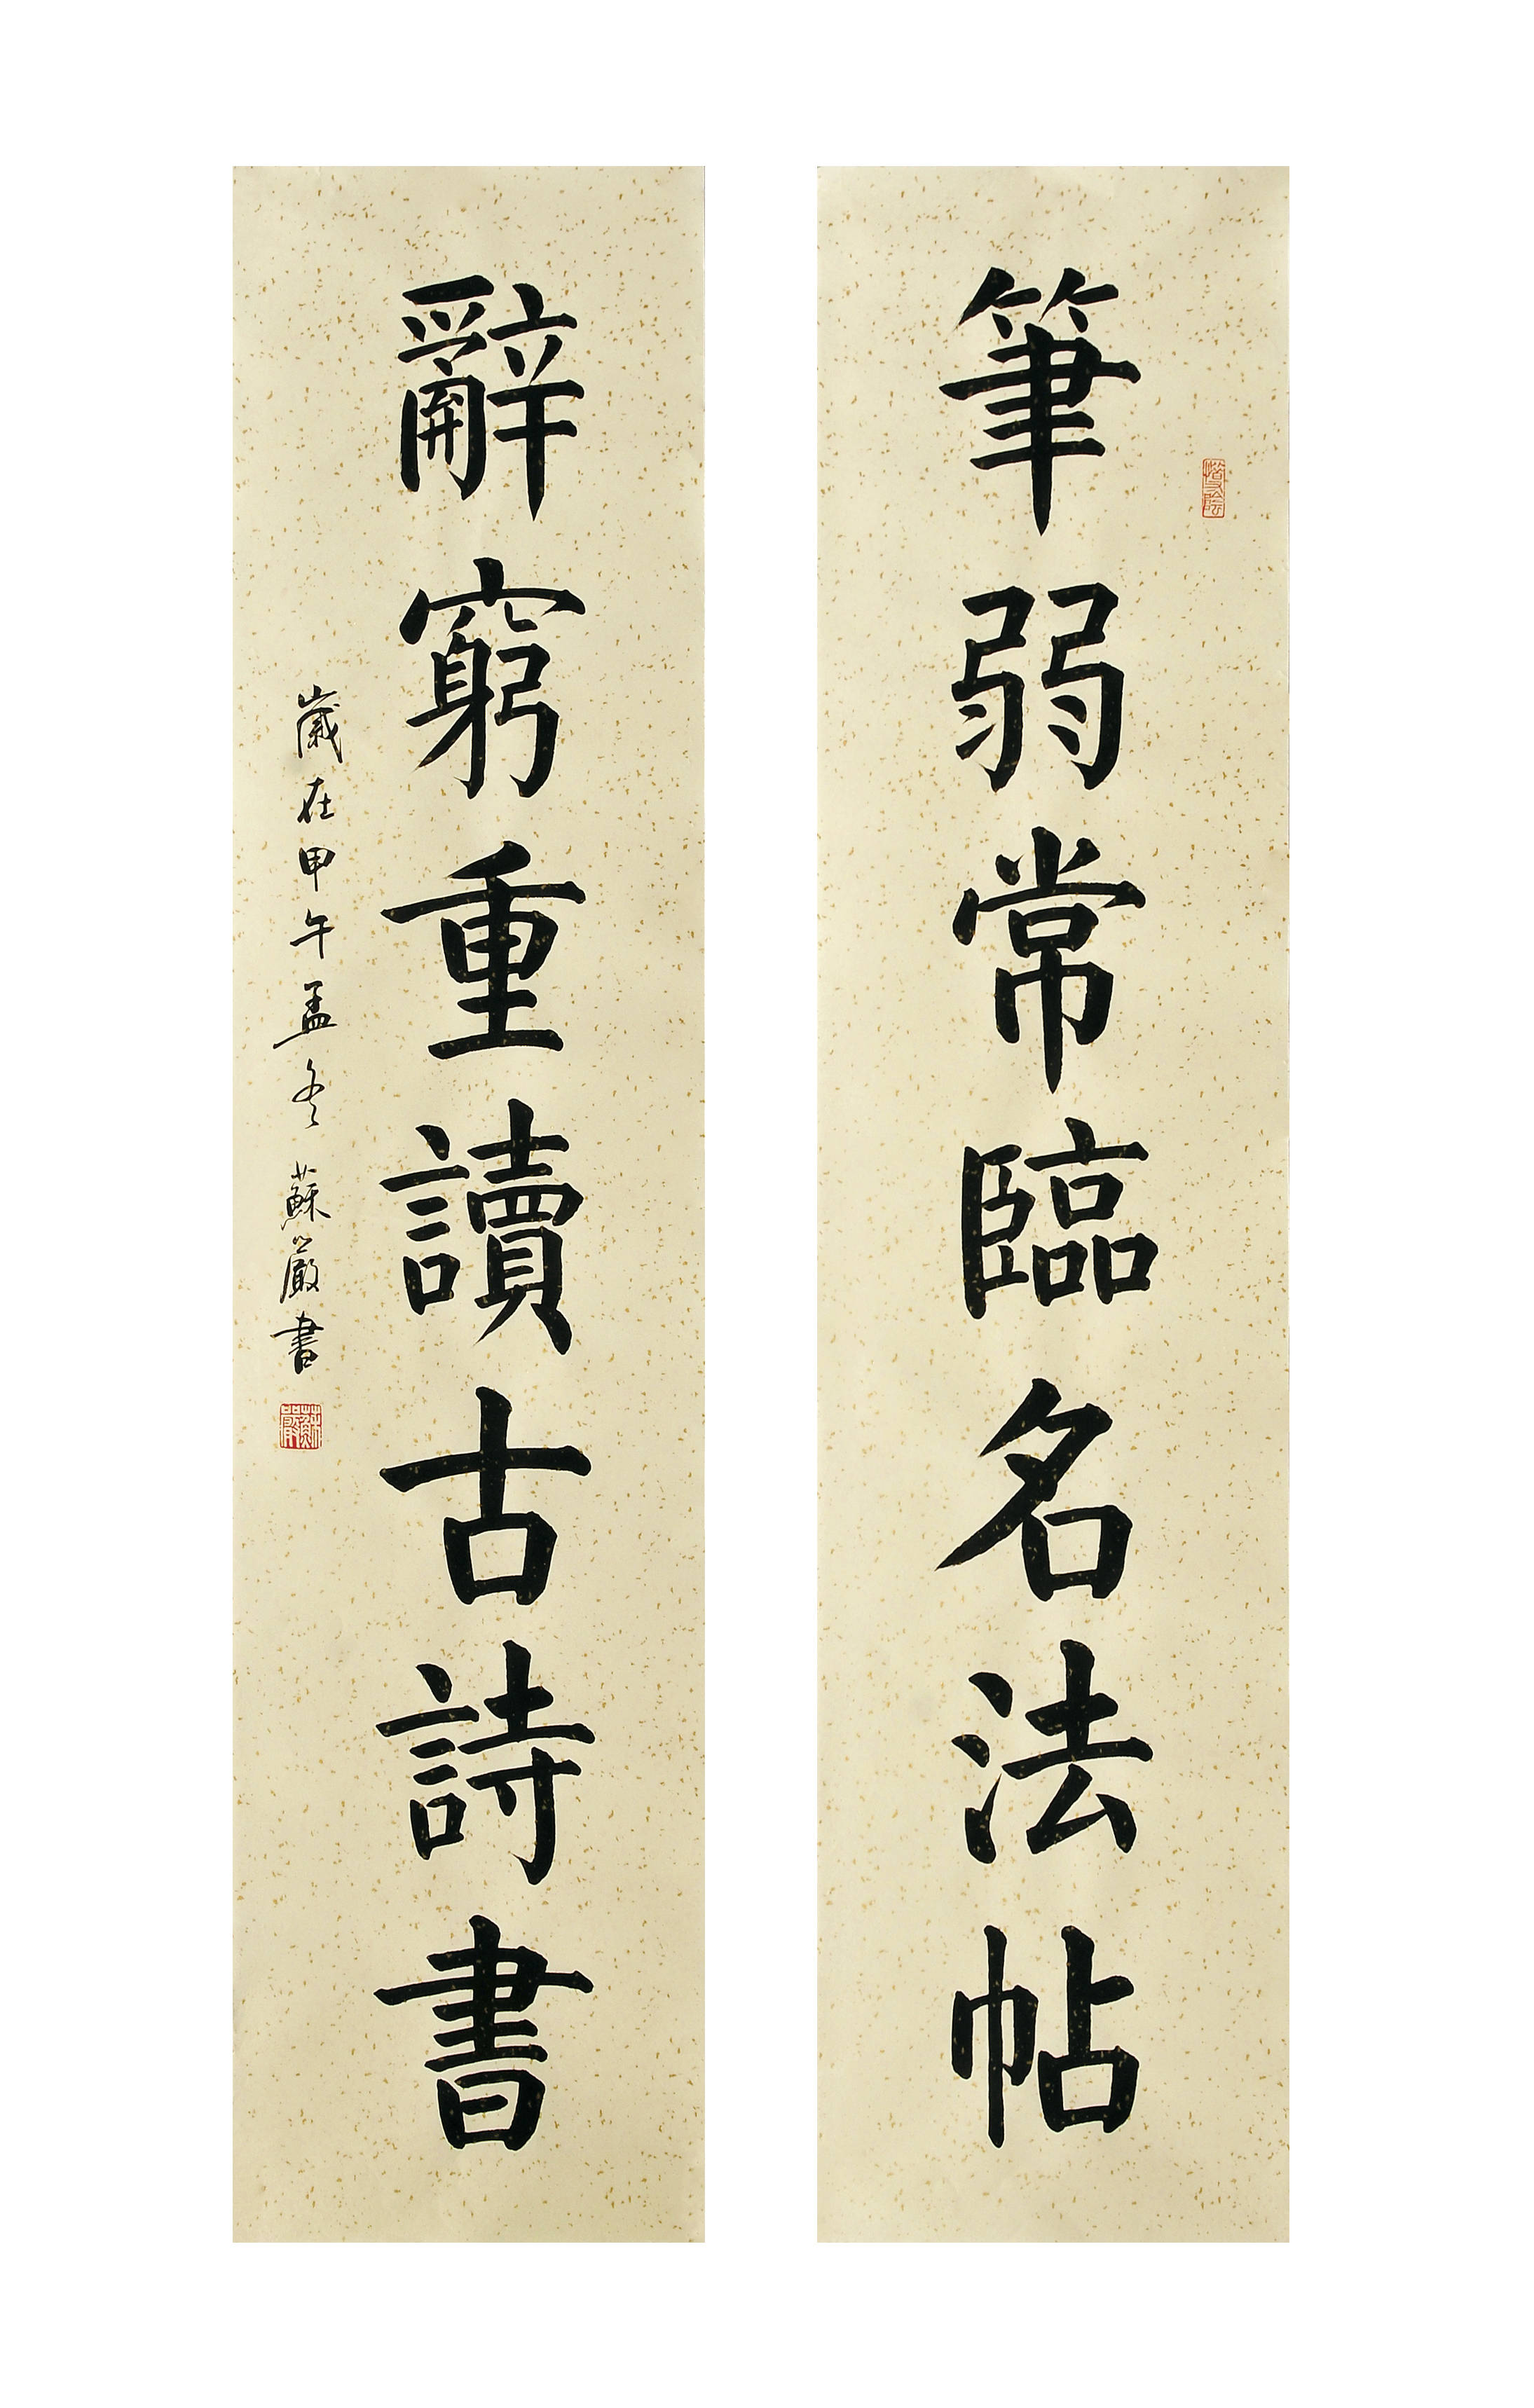 筆弱常臨名法帖
辭窮重讀古詩書
歲在甲午孟冬蘇嚴書
蘇嚴